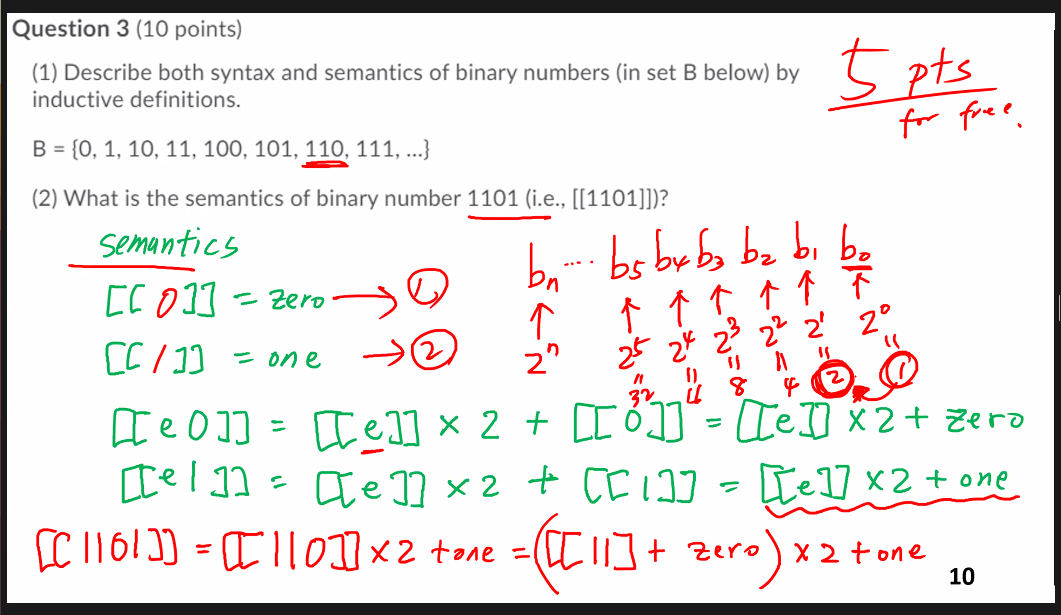 Question 3 (10 points)
5 pts
for free.
(1) Describe both syntax and semantics of binary numbers (in set B below) by
inductive definitions.
B = {0, 1, 10, 11, 100, 101, 110, 111, ...}
(2) What is the semantics of binary number 1101 (i.e., [[1101]])?
semantics
bn ... b5 b4 b3 b2 b1 b0
[[0]] = zero → 1
↑ ↑ ↑ ↑ ↑ ↑ ↑
2^n 2^5 2^4 2^3 2^2 2^1 2^0
[[1]] = one → 2
" " " " " "
32 16 8 4 2 1
[[e0]] = [[e]] × 2 + [[0]] = [[e]] × 2 + zero
[[e1]] = [[e]] × 2 + [[1]] = [[e]] × 2 + one
[[1101]] = [[110]] × 2 + one = ([[11] + zero) × 2 + one
10